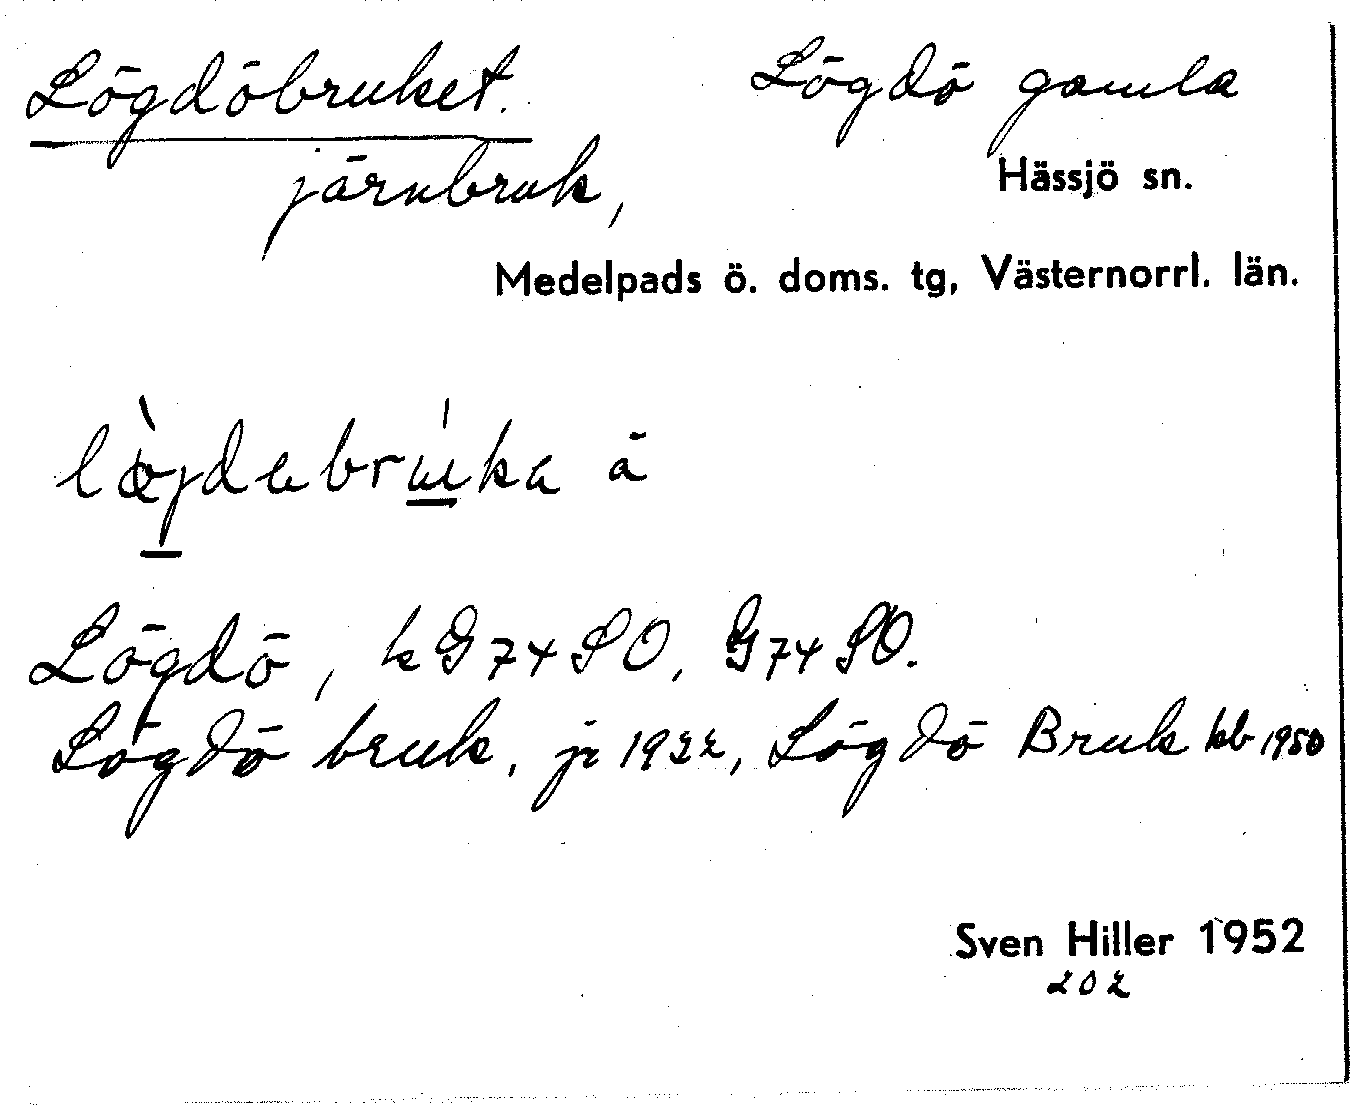 Lögdöbruket. Lögdö gamla
järnbruk, Hässjö sn.
Medelpads ö. doms. tg, Västernorrl. län.
å
Lögdö, k G 74 SO, G 74 SO.
Lögdö bruk, jr 1922, Lögdö Bruk kb 1950
Sven Hiller 1952
202